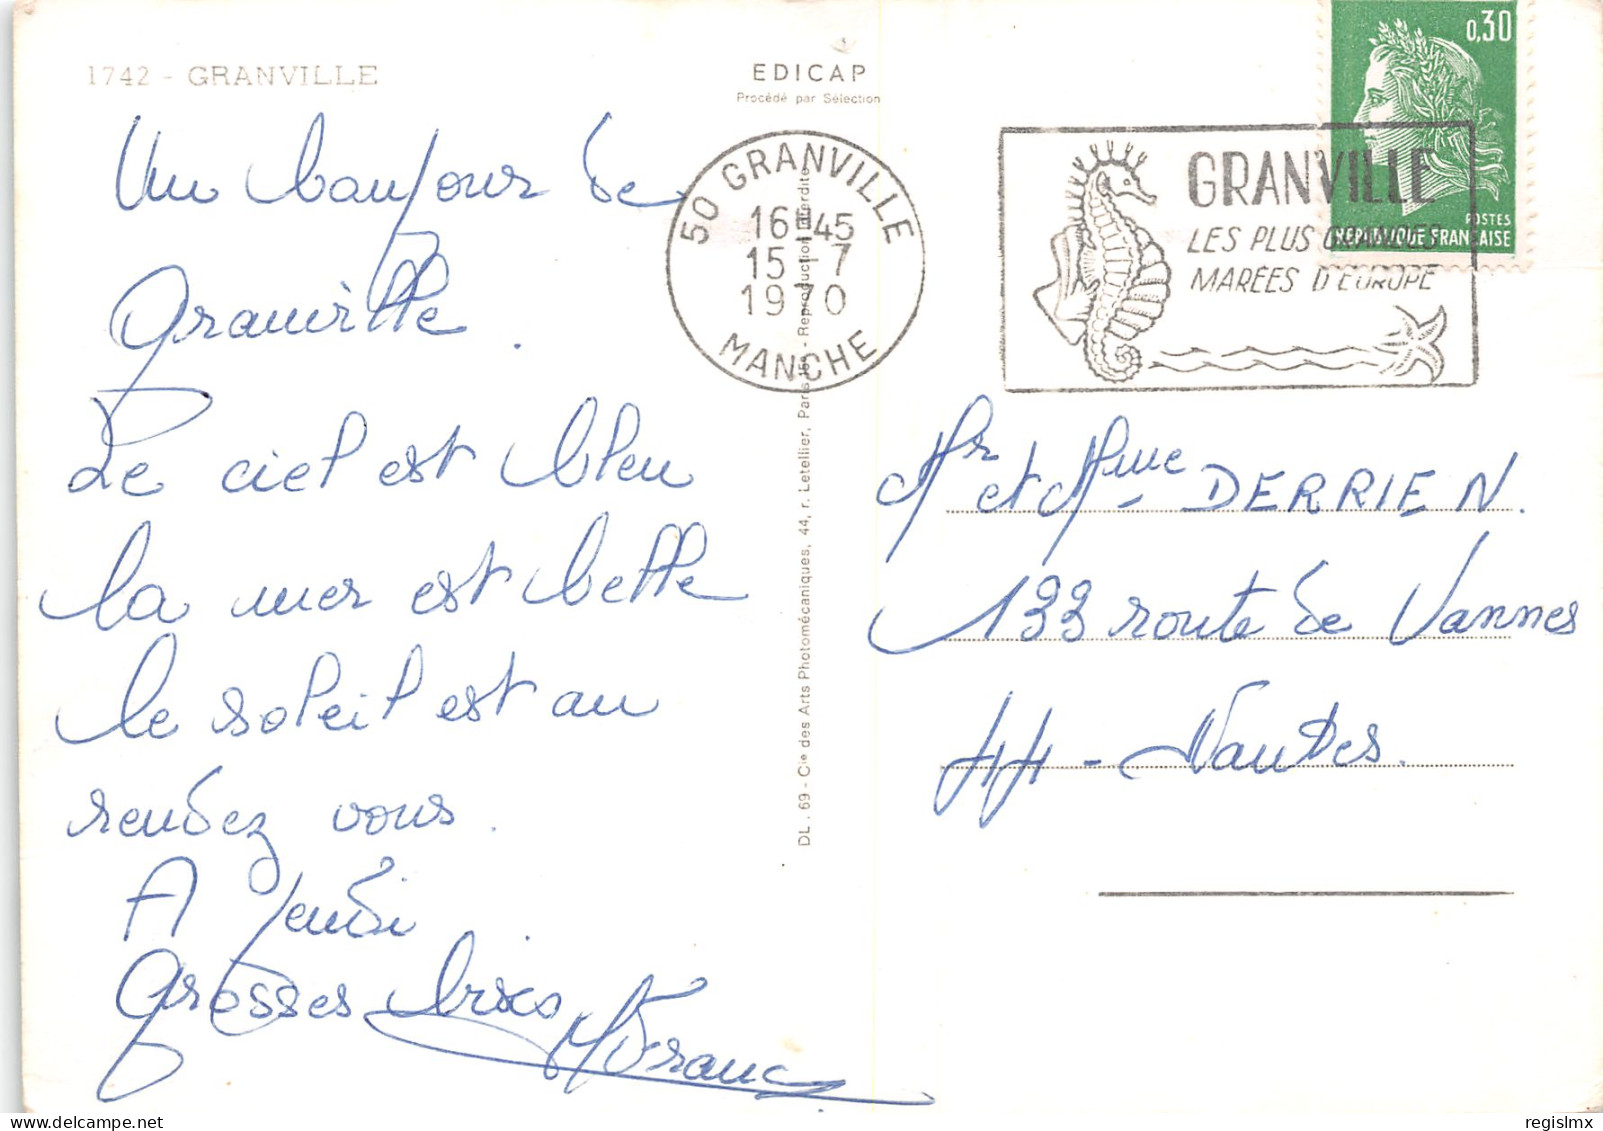 1742 - GRANVILLE
EDICAP
Procédé par Sélection
Un bonjour de
Granville.
Le ciel est bleu
la mer est belle
le soleil est au
rendez vous.
A jeudi
Grosses bixs
DL. 69 - Cie des Arts Photomécaniques, 44, r. Letellier, Paris 15e - Reproduction interdite
50 GRANVILLE
16H45
15-7
1970
MANCHE
GRANVILLE
LES PLUS GRANDES
MARÉES D'EUROPE
0,30
POSTES
REPUBLIQUE FRANCAISE
Mr et Mme DERRIEN.
133 route de Vannes
44 - Nantes.
regislmx